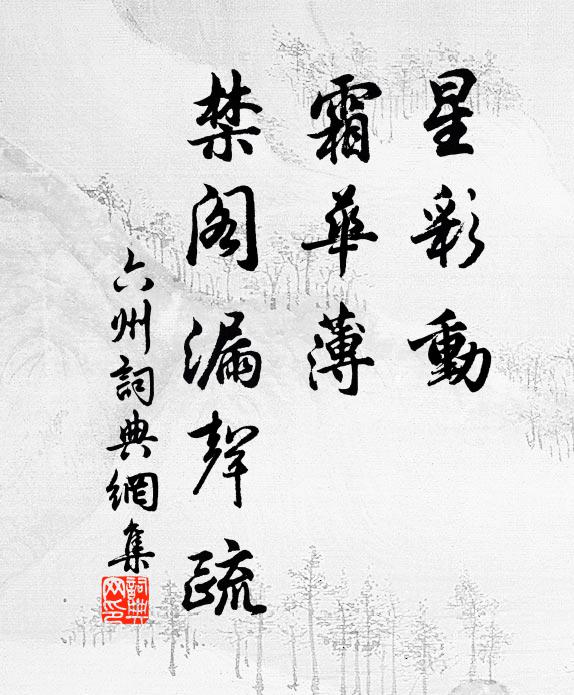 星彩動
霜華薄
禁閣漏聲疏
六州詞典網集
詞典
网印